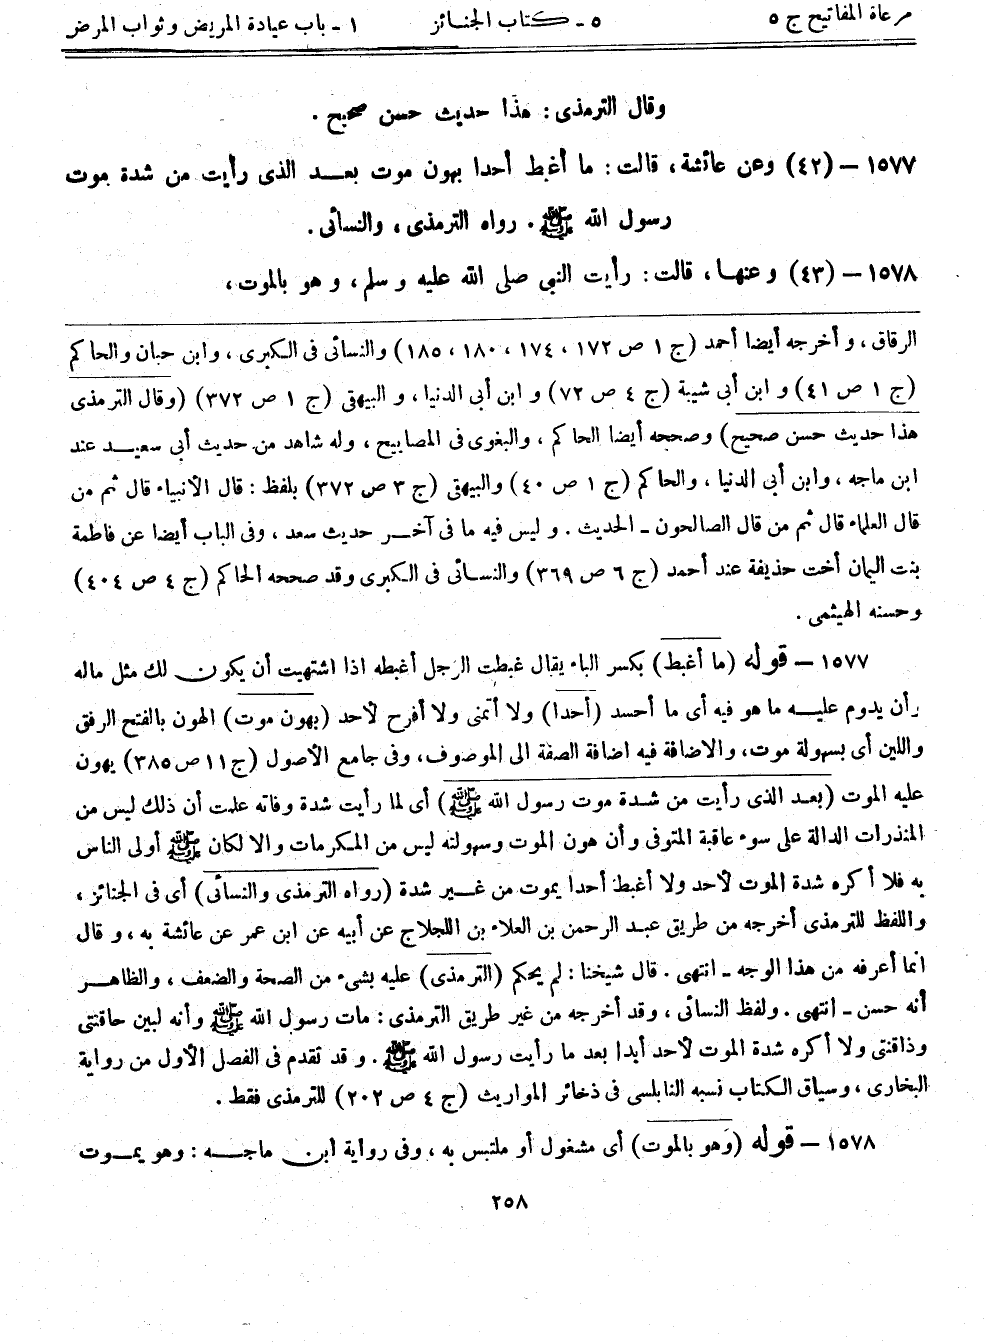 مرعاة المفاتيح ج ٥ ٥ ـ كتاب الجنائز ١ ـ باب عيادة المريض وثواب المرض
وقال الترمذى: هذا حديث حسن صحيح .
١٥٧٧ – (٤٢) وعن عائشة، قالت: ما أغبط أحدا بهون موت بعد الذى رأيت من شدة موت
رسول الله ﷺ. رواه الترمذى، والنسائى.
١٥٧٨ – (٤٣) وعنها، قالت: رأيت النبى صلى الله عليه وسلم، وهو بالموت،
الرقاق، وأخرجه أيضا أحمد (ج ١ ص ١٧٢، ١٧٤، ١٨٠، ١٨٥) والنسائى فى الكبرى، وابن حبان والحاكم
(ج ١ ص ٤١) وابن أبى شيبة (ج ٤ ص ٧٢) وابن أبى الدنيا، والبيهقى (ج ١ ص ٣٧٢) (وقال الترمذى
هذا حديث حسن صحيح) وصححه أيضا الحاكم، والبغوى فى المصابيح، وله شاهد من حديث أبى سعيد عند
ابن ماجه، وابن أبى الدنيا، والحاكم (ج ١ ص ٤٠) والبيهقى (ج ٣ ص ٣٧٢) بلفظ: قال الأنبياء قال ثم من
قال العلماء قال ثم من قال الصالحون ـ الحديث. وليس فيه ما فى آخر حديث سعد، وفى الباب أيضا عن فاطمة
بنت اليمان أخت حذيفة عند أحمد (ج ٦ ص ٣٦٩) والنسائى فى الكبرى وقد صححه الحاكم (ج ٤ ص ٤٠٤)
وحسنه الهيثمى.
١٥٧٧ – قوله (ما أغبط) بكسر الباء يقال غبطت الرجل أغبطه اذا اشتهيت أن يكون لك مثل ماله
وأن يدوم عليه ما هو فيه أى ما أحسد (أحدا) ولا أتمنى ولا أفرح لأحد (بهون موت) الهون بالفتح الرفق
واللين أى بسهولة موت، والاضافة فيه اضافة الصفة الى الموصوف، وفى جامع الأصول (ج ١١ ص ٣٨٥) يهون
عليه الموت (بعد الذى رأيت من شدة موت رسول الله ﷺ) أى لما رأيت شدة وفاته علمت أن ذلك ليس من
المنذرات الدالة على سوء عاقبة المتوفى وأن هون الموت وسهولته ليس من المكرمات والا لكان ﷺ أولى الناس
به فلا أكره شدة الموت لأحد ولا أغبط أحدا يموت من غير شدة (رواه الترمذى والنسائى) أى فى الجنائز،
واللفظ للترمذى أخرجه من طريق عبد الرحمن بن العلاء بن اللجلاج عن أبيه عن ابن عمر عن عائشة به، وقال
انما أعرفه من هذا الوجه ـ انتهى. قال شيخنا: لم يحكم (الترمذى) عليه بشىء من الصحة والضعف، والظاهر
أنه حسن ـ انتهى. ولفظ النسائى، وقد أخرجه من غير طريق الترمذى: مات رسول الله ﷺ وأنه لبين حاقنتى
وذاقنتى ولا أكره شدة الموت لأحد أبدا بعد ما رأيت رسول الله ﷺ. وقد تقدم فى الفصل الأول من رواية
البخارى، وسياق الكتاب نسبه النابلسى فى ذخائر المواريث (ج ٤ ص ٢٠٢) للترمذى فقط.
١٥٧٨ – قوله (وهو بالموت) أى مشغول أو ملتبس به، وفى رواية ابن ماجه: وهو يموت
٢٥٨